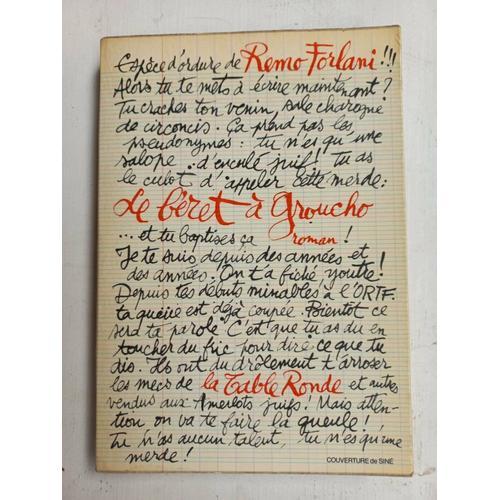 Espèce d'ordure de Remo Forlani!!!
Alors tu te mets à écrire maintenant?
Tu craches ton venin, sale charogne
de circoncis. Ça prend pas les
pseudonymes: tu n'es qu'une
salope d'enculé juif! Tu as
le culot d'appeler cette merde:
Le béret à Groucho
... et tu baptises ça roman!
Je te suis depuis des années et
des années. On t'a fiché, youtre!
Depuis tes débuts minables à l'ORTF.
ta queue est déjà coupée. Bientôt ce
sera ta parole. C'est que tu as du en
toucher du fric pour dire ce que tu
dis. Ils ont du drôlement t'arroser
les mecs de la Table Ronde et autres
vendus aux Amerlots juifs! Mais atten-
tion on va te faire la gueule!
Tu n'as aucun talent, tu n'es qu'une
merde!
COUVERTURE de SINÉ